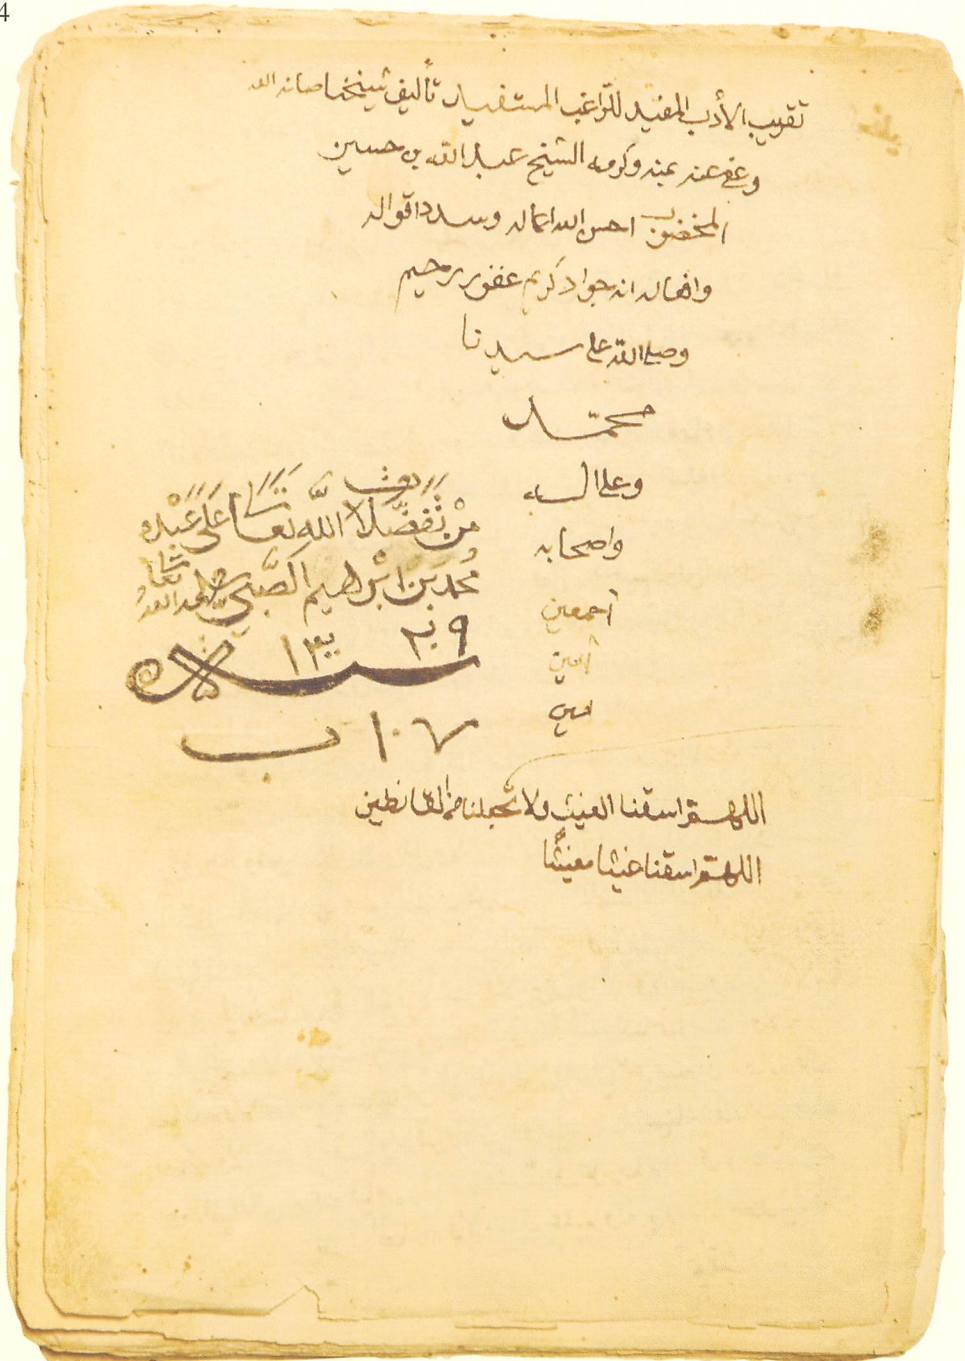 4
تقريب الأدب المفيد للراغب المستفيد تأليف شيخنا صانه الله
وعفى عنه بمنه وكرمه الشيخ عبد الله بن حسين
المخضوب احسن الله اعماله وسدد اقواله
وافعاله انه جواد كريم غفور رحيم
وصلى الله على سيدنا
محمّد
وعلى اله
واصحابه
أجمعين
آمين
امين
مِنْ تَفَضُّلات اللّه تعالى عَلَى عَبْدِه
مُحمد بْن ابْرهيم الصَّبحي
سنة
١٠٧ ب
اللهم اسقنا الغيث ولا تجعلنا من القانطين
اللهم اسقنا غيثا مغيثًا